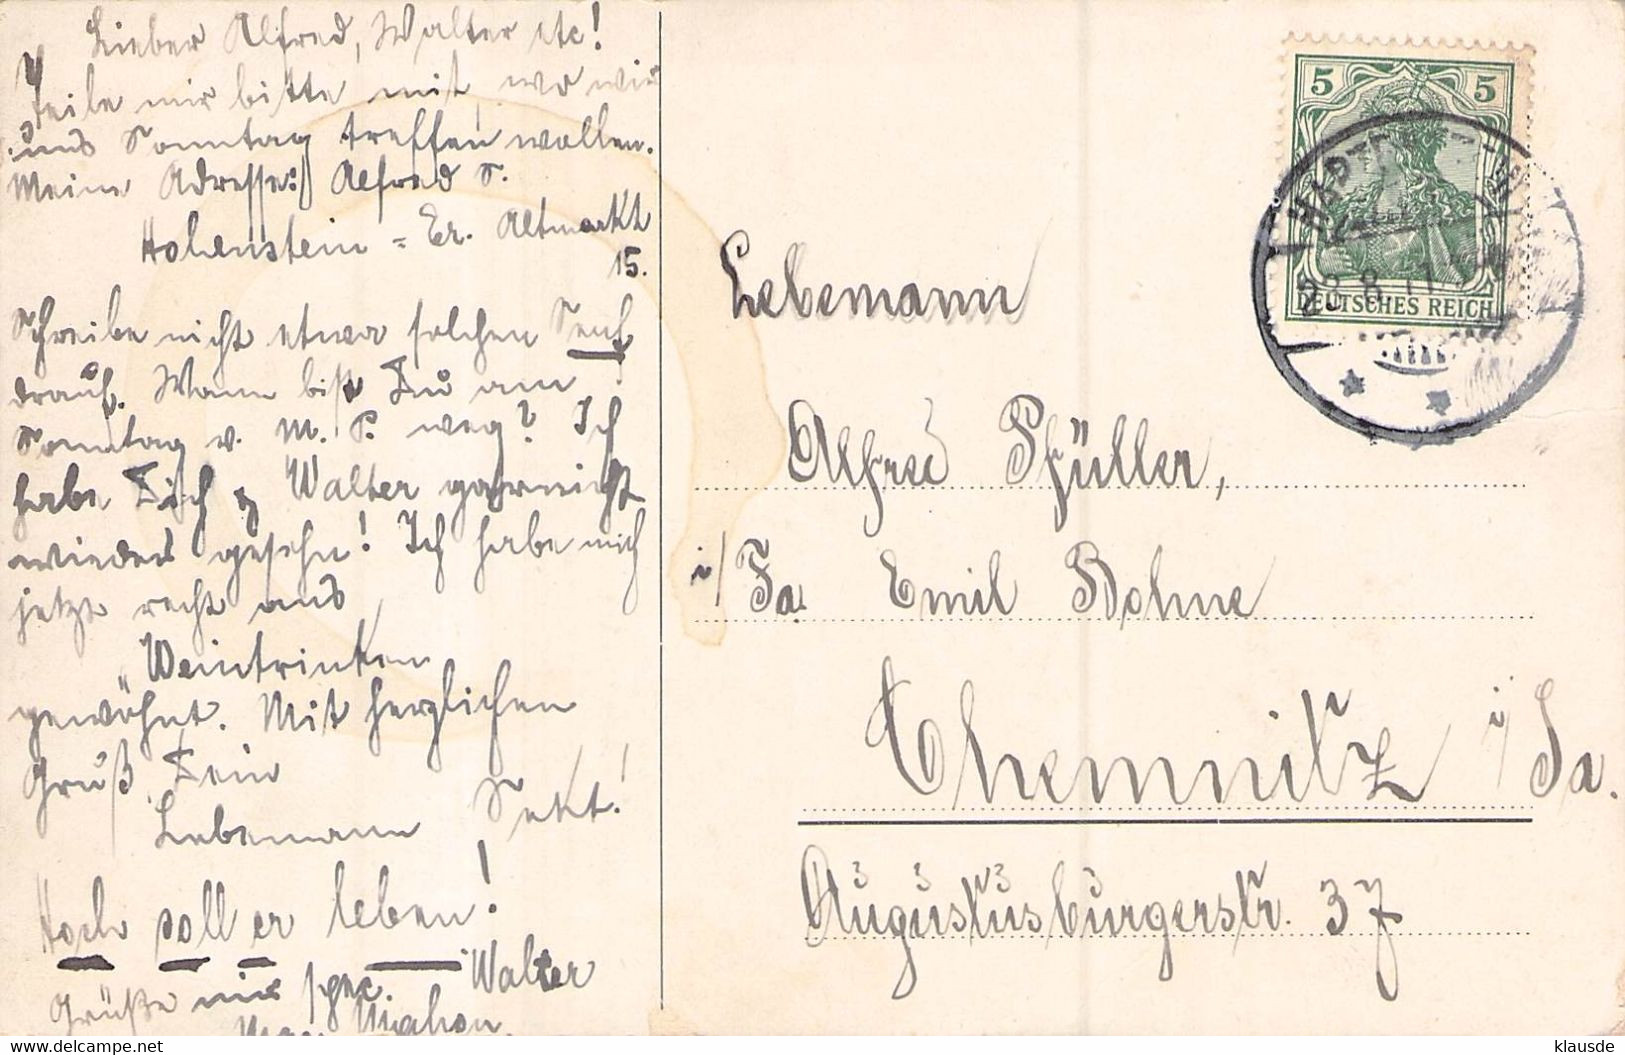 Lieber Alfred, Walter etc!
Teile mir bitte mit, wo wir
uns Sonntag treffen wollen.
Meine Adresse: Alfred S.
Hohenstein=Er. Altmarkt
15.
Schreibe nicht etwa solchen Senf
drauf. Wann bist Du am
Sonntag v. M. P. weg? Ich
habe Dich & Walter garnicht
wieder gesehn! Ich habe mich
jetzt recht ans
"Weintrinken
gewöhnt. Mit herzlichen
Gruß Dein
Lebemann Sekt!
Hoch soll er leben!
Grüße mir spec. Walter
5 5
DEUTSCHES REICH
23.8.
Lebemann
Alfred Pfüller,
i/Fa. Emil Bohne
Chemnitz i/Sa.
Augustusburgerstr. 37
Delcampe.net
klausde